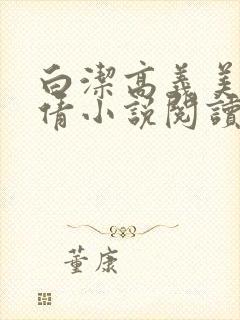 白潔高義美
倩小說閱讀
董康